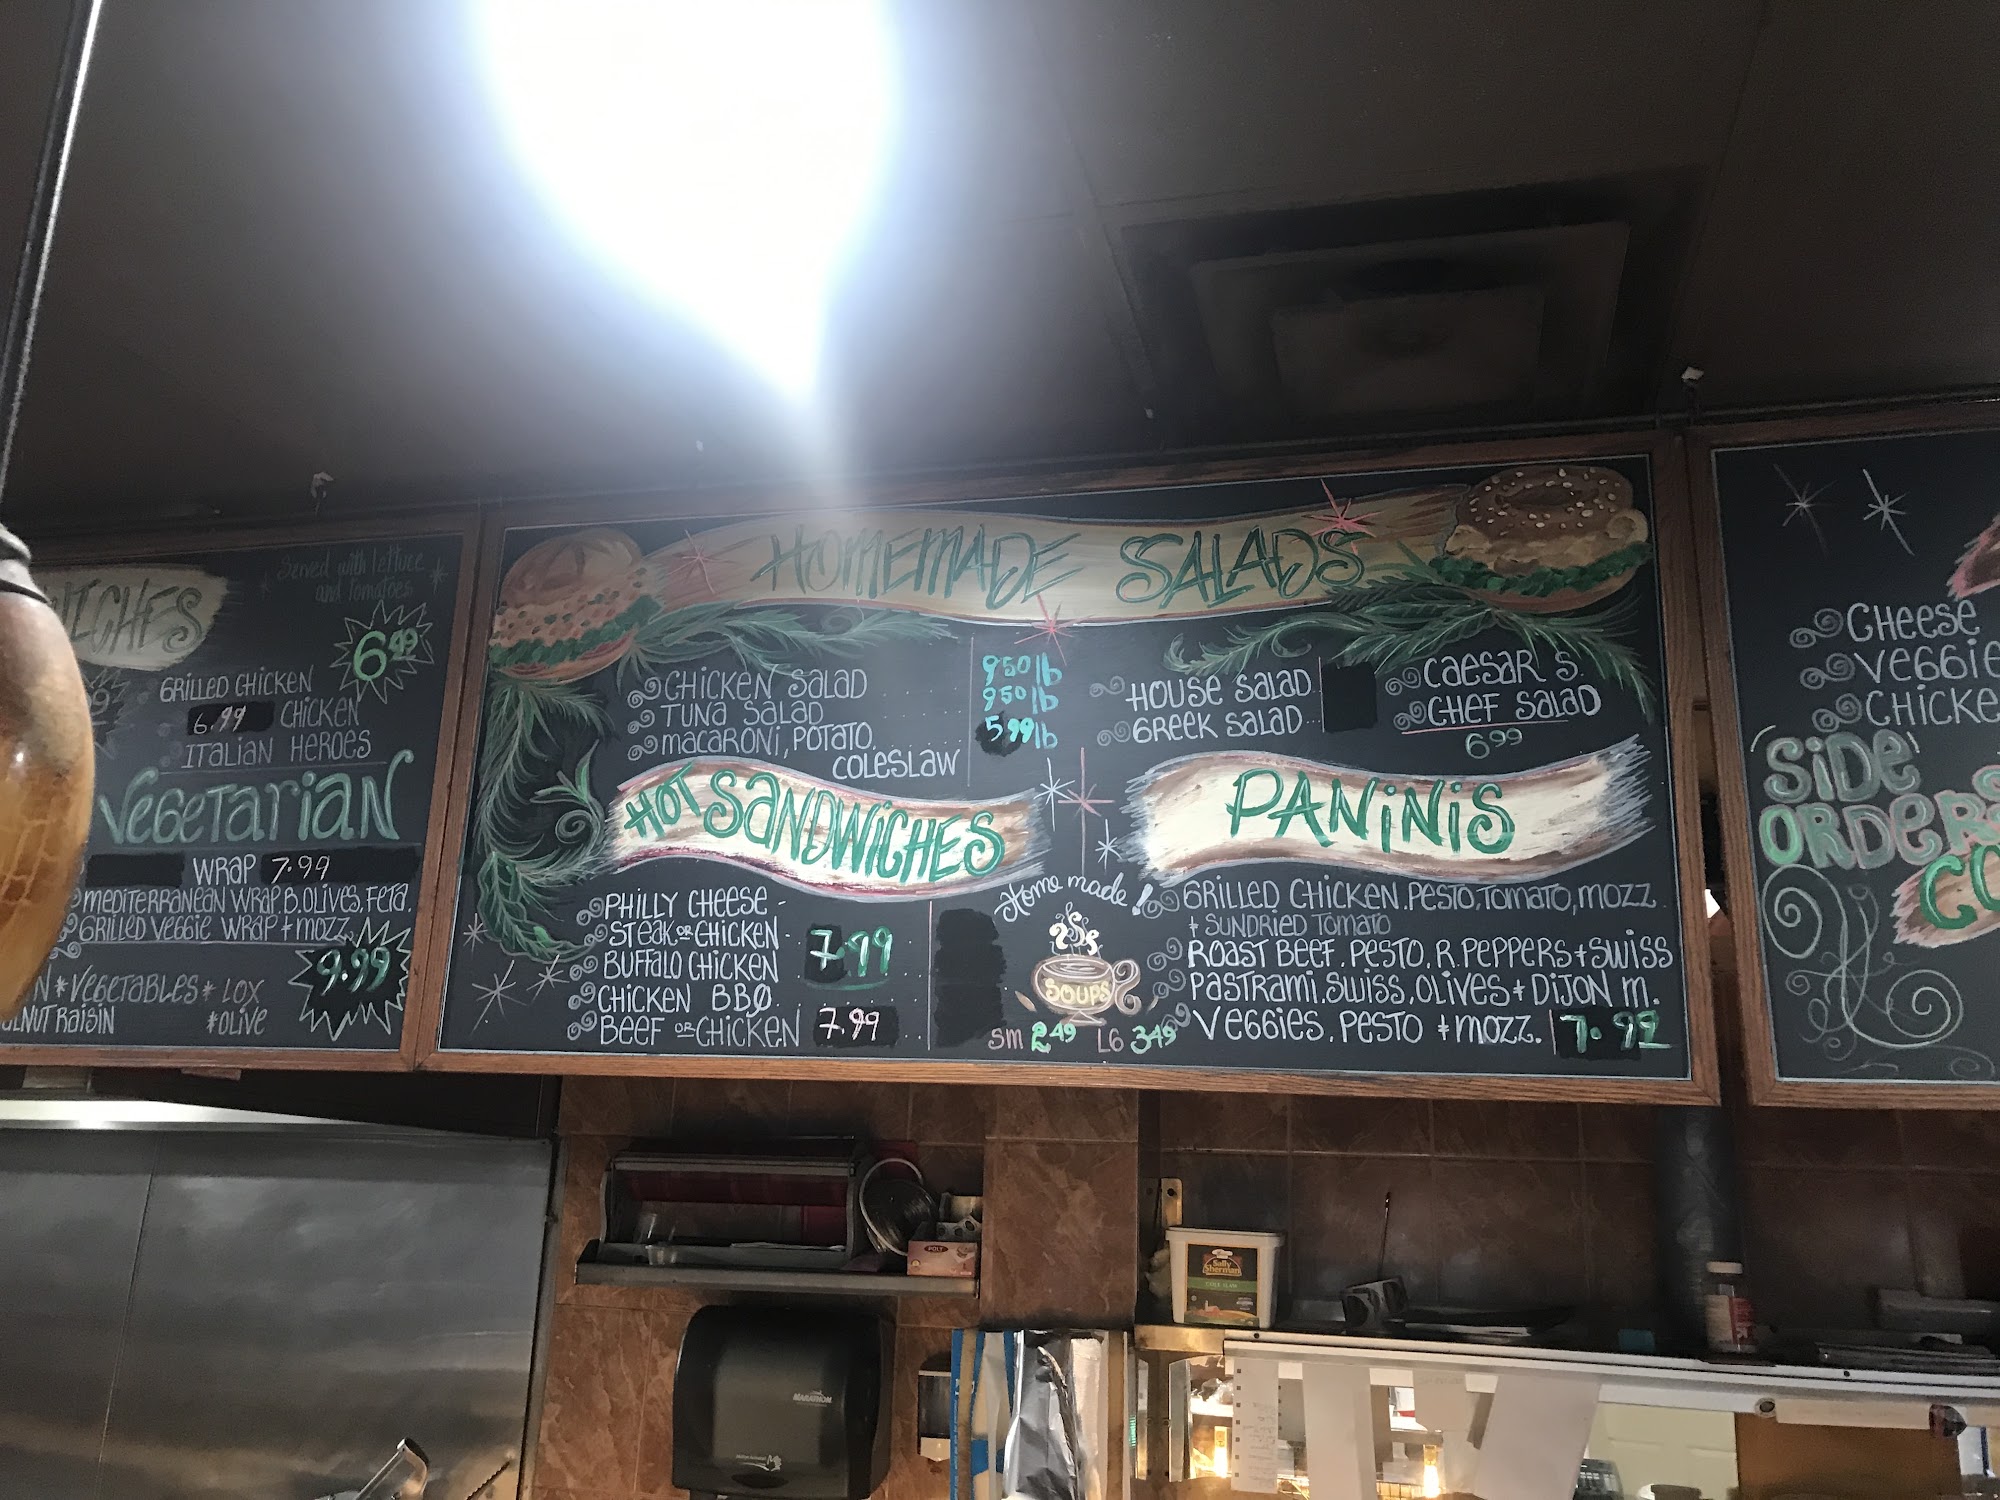 Served with lettuce
and tomatoes
6.99
GRILLED CHICKEN
6.99 CHICKEN
ITALIAN HEROES
VEGETARIAN
WRAP 7.99
MEDITERRANEAN WRAP B. OLIVES, FETA.
GRILLED VEGGIE WRAP + MOZZ.
9.99
* VEGETABLES * LOX
RAISIN *OLIVE
HOMEMADE SALADS
CHICKEN SALAD 9.50 lb
TUNA SALAD 9.50 lb
MACARONI, POTATO, 5.99 lb
COLESLAW
HOUSE SALAD
GREEK SALAD
CAESAR S.
CHEF SALAD
6.99
HOT SANDWICHES
PHILLY CHEESE -
STEAK OR CHICKEN -
BUFFALO CHICKEN 7.99
CHICKEN BBQ
BEEF OR CHICKEN 7.99
Home made!
SOUPS
SM 2.49 LG 3.49
PANINIS
GRILLED CHICKEN. PESTO, TOMATO, MOZZ
+ SUNDRIED TOMATO
ROAST BEEF. PESTO. R. PEPPERS + SWISS
PASTRAMI. SWISS, OLIVES + DIJON M.
VEGGIES. PESTO + MOZZ. 7.99
CHEESE
VEGGIE
CHICKE
SIDE
ORDERS
CO
POLY
Sally Sherman
COLE SLAW
MARATHON